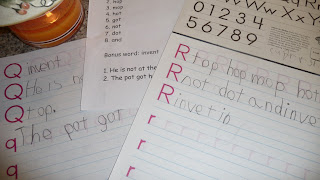 7. hop
8. hot
5. got
6. not
7. dot
8. and
Bonus word: invent
1. He is not at the
2. The pot got h
W w X x Y
0 1 2 3 4
5 6 7 8 9
Q invent
Q He is
Q top.
q The pot got
q
R top hop mop hot
R not dot and inve
R invet in
r
r
r